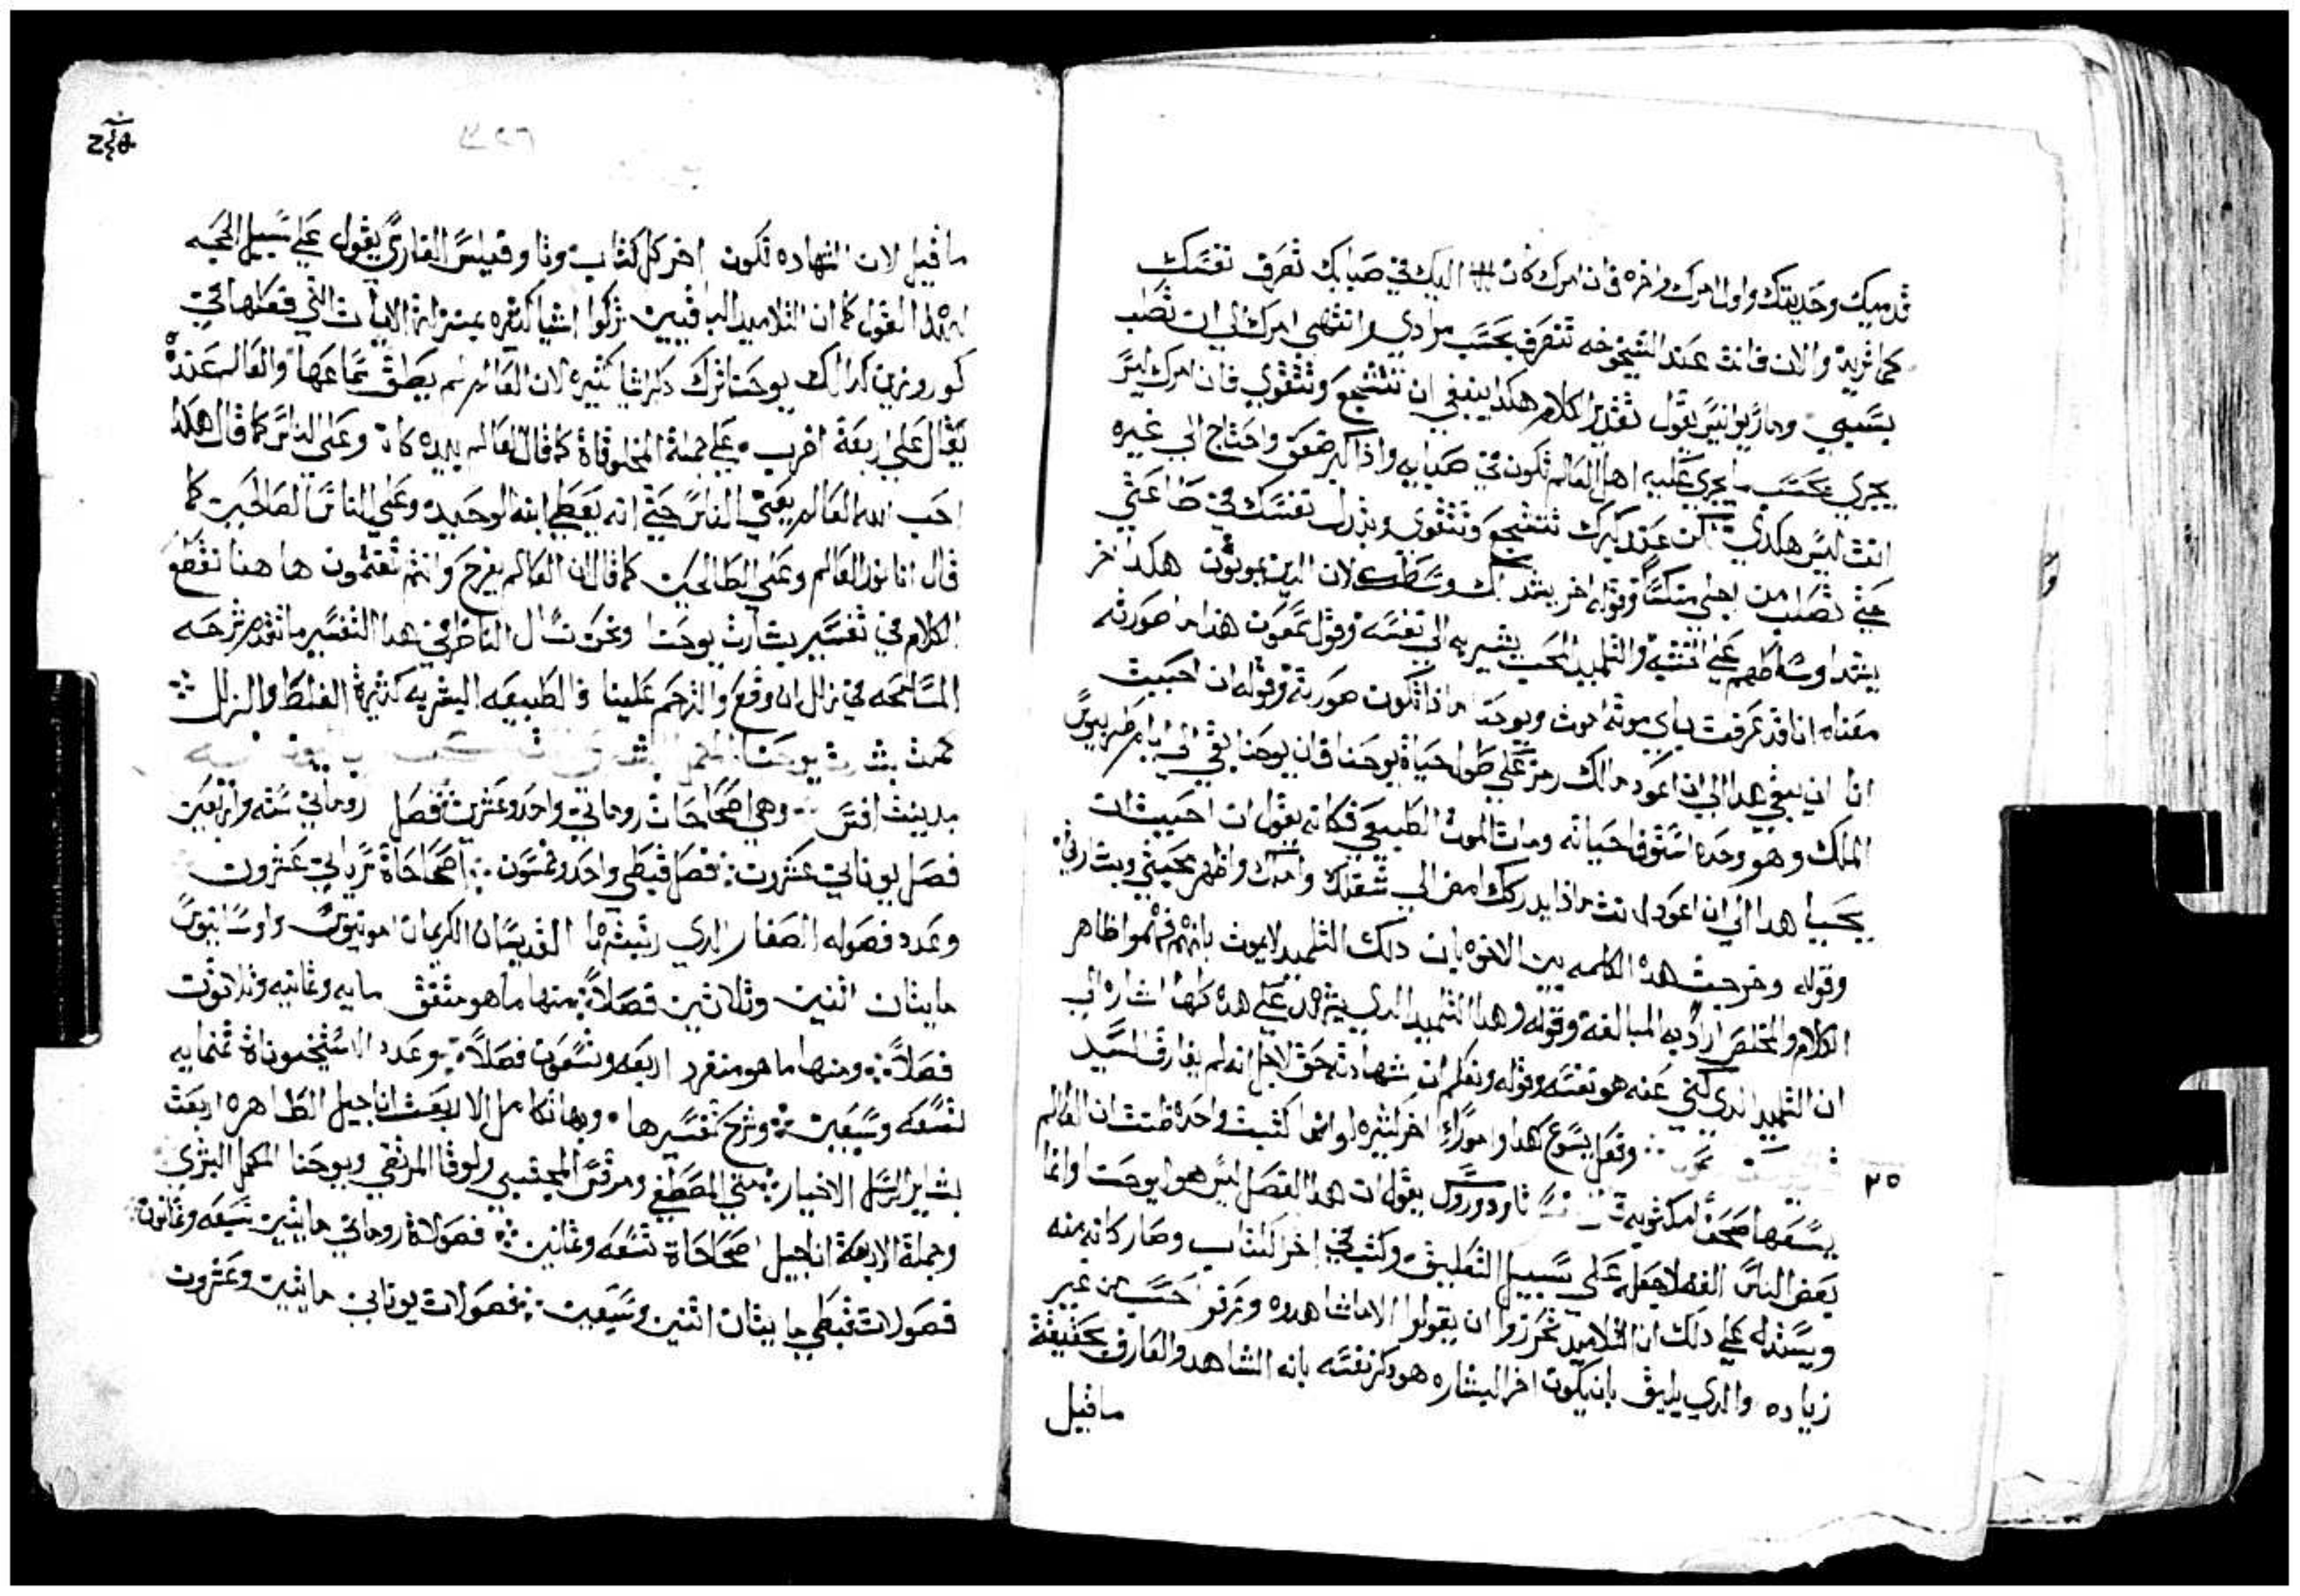 قدميك وحديثك واول امرك واخره فان امرك كان اليك في صباك تصرف نفسك
كما تريد والان فانت عند الشيخوخه تتصرف بحسب مرادي وانتهى امرك الي ان تصلب
بسببي وماريوانيس يقول تقدير الكلام هكدا ينبغي ان تتشجع وتتقوي فان امرك ليس
يجري بحسب ما يجري عليه اهل العالم تكون في صبايه واذا كبر ضعف واحتاج الي غيره
انت ليس هكدي لكن عند كبرك تتشجع وتتقوي وبتدل نفسك في طاعتي
حتي تصلب من اجلي منكسا وقوله اخر يشد لك وسطك لان الدين يموتون هكدا اخر
يشد اوساطهم علي الخشبه والتلميد المحب يشير به الي نفسه وقول شمعون هدا ما صورته
معناه انا قد عرفت باي موته اموت ويوحنا ماذا تكون صورته وقوله ان احببت
انا ان يبقي هدا الي ان اعود مالك رمز علي طول حياة يوحنا فان يوحنا بقي الي ايام طربيوس
الملك وهو وحده استوفا حياته ومات الموت الطبيعي فكانه يقول ان احببت ان
يحيا هدا الي ان اعود انت ماذا يدركك امض الي شغلك واظهر محبتي وبشارتي
وقوله وخرجت هده الكلمه بين الاخوه بان دلك التلميد لا يموت بانهم فهموا ظاهر
الكلام والمخلص اراد به المبالغة وقوله وهدا التلميد الدي يشهد علي هده كلها اشاره الي
ان التلميد الدي كني عنه هو نفسه وقوله ونعلم ان شهادته حق لاجل انه لم يفارق السيد
وفعل يسوع هدا وامورا اخر كثيره لو انها كتبت واحده ظننت ان العالم
٢٥
يسعها صحفا مكتوبه تاودوروس يقول ان هدا الفصل ليس هو ليوحنا وانما
بعض الناس الفضلا جعله علي سبيل التعليق وكتب في اخر الكتاب وصار كانه منه
ويستدل علي دلك ان التلاميد تحرزوا ان يقولوا الا ما شاهدوه وعرفو حسب من غير
زياده والدي يليق بان يكون اخر البشاره هو دكر نفسه بانه الشاهد والعارف بحقيقة
ماقيل
ماقيل لان الشهاده تكون اخر كل كتاب وتاوفيلس القاري يقول علي سبيل الحجه
لهدا القول كما ان التلاميد الباقيين تركوا اشيا كثيره بمنزلة الايات التي فعلها في
كوروزين كدالك يوحنا ترك دكر اشيا كثيره لان العالم لم يطق سماعها والعالم عنده
يقال علي اربعة اضرب علي جملة المخلوقاة كما قال العالم بيده كان وعلي الناس كما قال هكدا
احب الله العالم يعني الناس حتي انه يعطي ابنه الوحيد وعلي الناس الصالحين كما
قال انا نور العالم وعلي الطالحين كما قال ان العالم يفرح وانتم تغتمون ها هنا نقطع
الكلام في تفسير بشارت يوحنا ونحن نسال الناظر في هدا التفسير ما تقدم شرحه
المسامحه في زلل ان وقع والترحم علينا فالطبيعه البشريه كثيرة الغلط والزلل
كملت بشارت يوحنا
مدينت افسس وهي اصحاحات روماني واحد وعشرين فصل روماني سته واربعين
فصل يوناني عشرون فصل قبطي واحد وخمسون اصحاحاة سرياني عشرون
وعدد فصوله الصغار الدي رتبتهما القديسان الكريمان امونيوس واوسابيوس
مايتان اثنين وثلاثين فصلا منها ما هو متفق مايه وثمانيه وثلاثون
فصلا ومنها ما هو منفرد اربعه وتسعون فصلا وعدد الاستخموناة ثمنمايه
تسعه وسبعين وشرح تفسيرها وبها تكامل الاربعت اناجيل الطاهره اربعت
بشاير الرسل الاخيار متي المصطفي ومرقس المجتبي ولوقا المرتقي ويوحنا المكمل البشري
وجملة الاربعة اناجيل اصحاحاة تسعه وثمانين فصولاة روماني مايتين تسعه وثمانون
فصولات قبطي مايتان اثنين وسبعين فصولات يوناني مايتين وعشرون